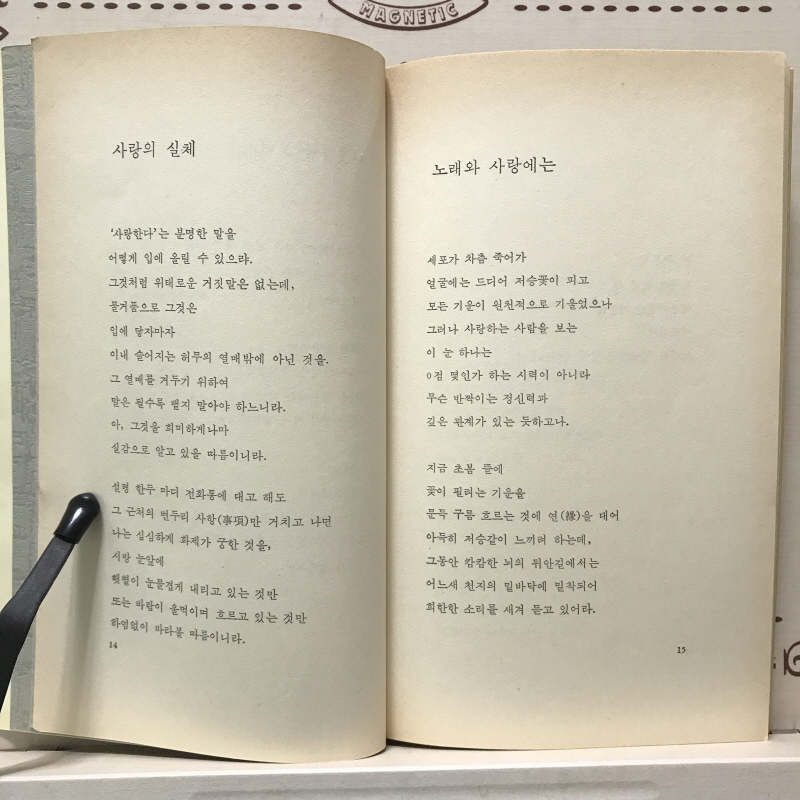 MAGNETIC
사랑의 실체
'사랑한다'는 분명한 말을
어떻게 입에 올릴 수 있으랴.
그것처럼 위태로운 거짓말은 없는데,
물거품으로 그것은
입에 닿자마자
이내 슬어지는 허무의 열매밖에 아닌 것을.
그 열매를 거두기 위하여
말은 될수록 뱉지 말아야 하느니라.
아, 그것을 희미하게나마
실감으로 알고 있을 따름이니라.
설령 한두 마디 전화통에 대고 해도
그 근처의 변두리 사항(事項)만 거치고 나면
나는 심심하게 화제가 궁한 것을,
시방 눈앞에
햇볕이 눈물겹게 내리고 있는 것만
또는 바람이 울먹이며 흐르고 있는 것만
하염없이 바라볼 따름이니라.
14
노래와 사랑에는
세포가 차츰 죽어가
얼굴에는 드디어 저승꽃이 피고
모든 기운이 원천적으로 기울었으나
그러나 사랑하는 사람을 보는
이 눈 하나는
0점 몇인가 하는 시력이 아니라
무슨 반짝이는 정신력과
깊은 관계가 있는 듯하고나.
지금 초봄 뜰에
꽃이 필려는 기운을
문득 구름 흐르는 것에 연(緣)을 대어
아득히 저승같이 느끼려 하는데,
그동안 캄캄한 뇌의 뒤안길에서는
어느새 천지의 밑바닥에 밀착되어
희한한 소리를 새겨 듣고 있어라.
15